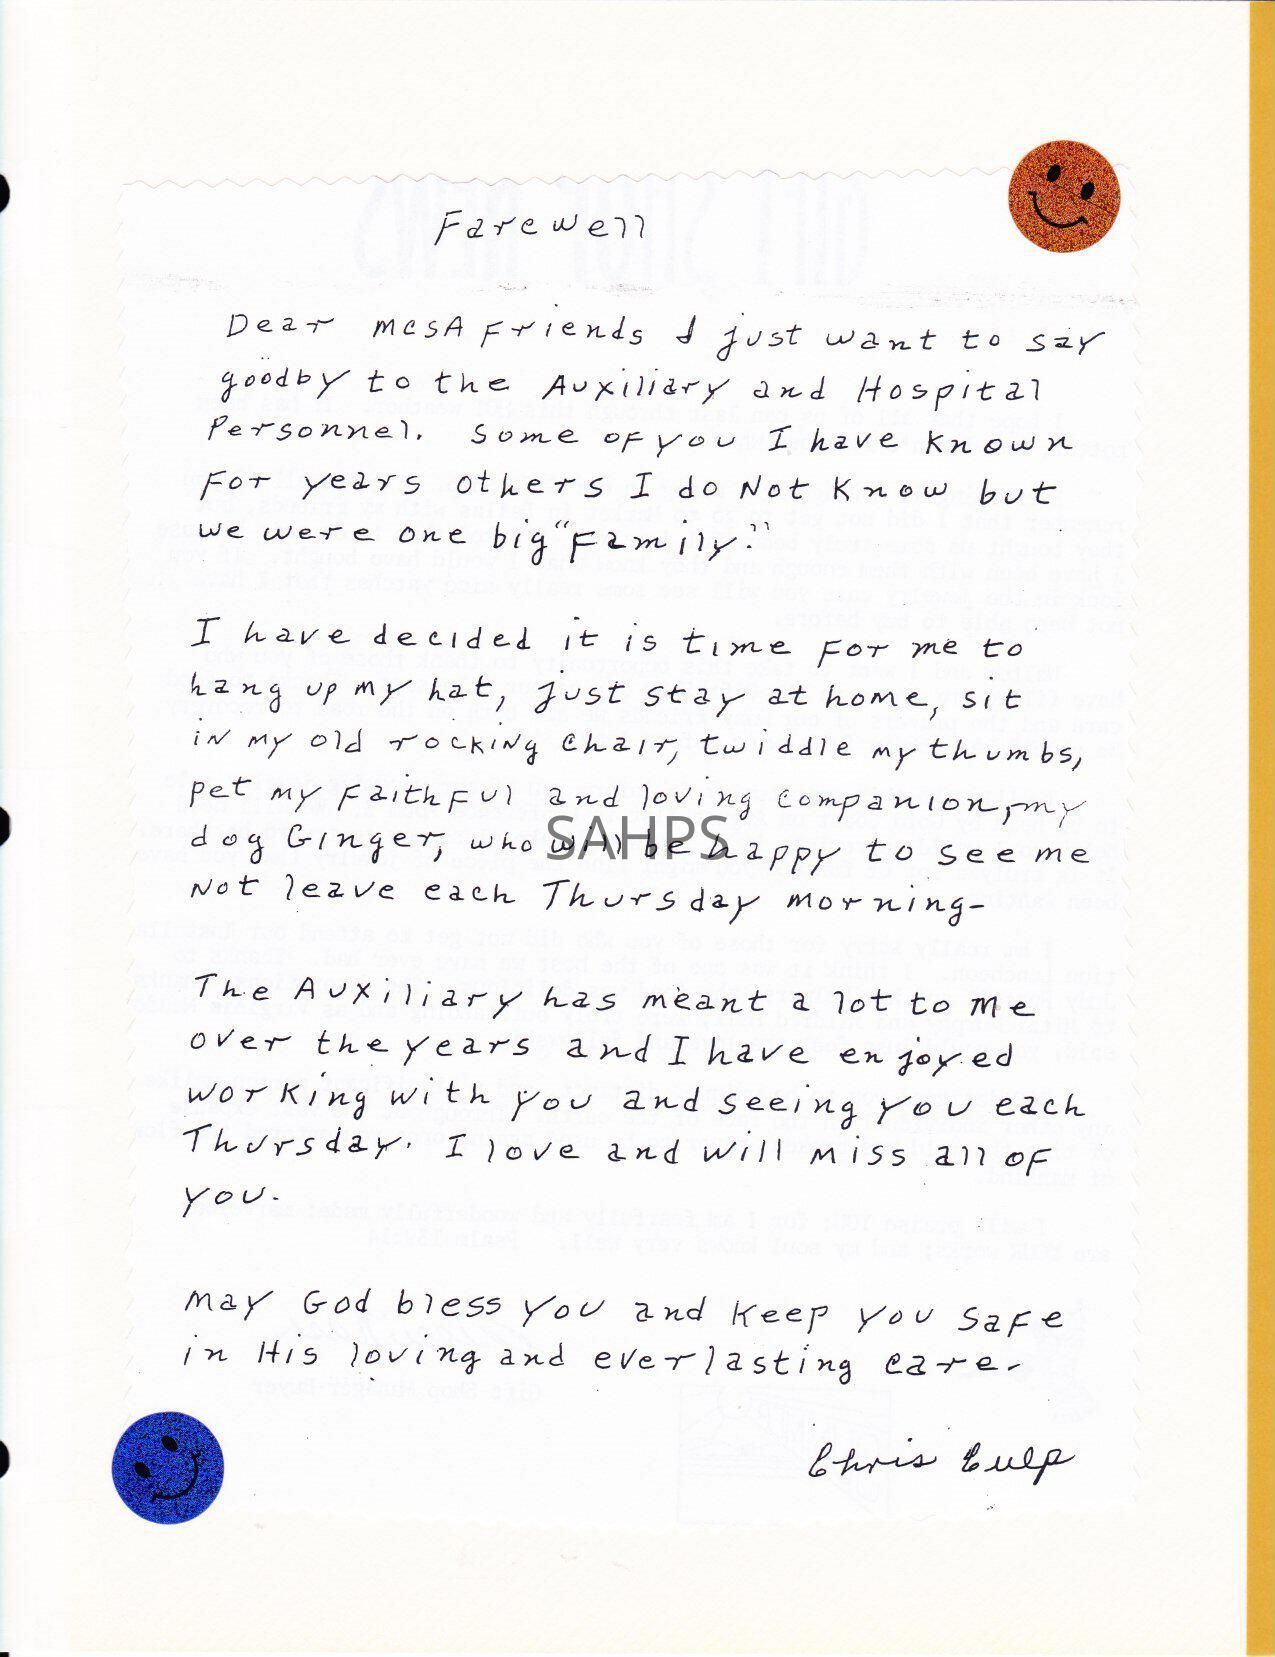 Farewell
Dear MCSA Friends I just want to say
goodby to the Auxiliary and Hospital
Personnel. Some of you I have known
for years others I do Not Know but
we were one big "Family."
I have decided it is time for me to
hang up my hat, just stay at home, sit
in my old rocking chair, twiddle my thumbs,
pet my faithful and loving companion, my
dog Ginger, who will be happy to see me
Not leave each Thursday morning-
SAHPS
The Auxiliary has meant a lot to me
over the years and I have enjoyed
working with you and seeing you each
Thursday. I love and will miss all of
you.
May God bless you and keep you safe
in His loving and everlasting care-
Chris Culp